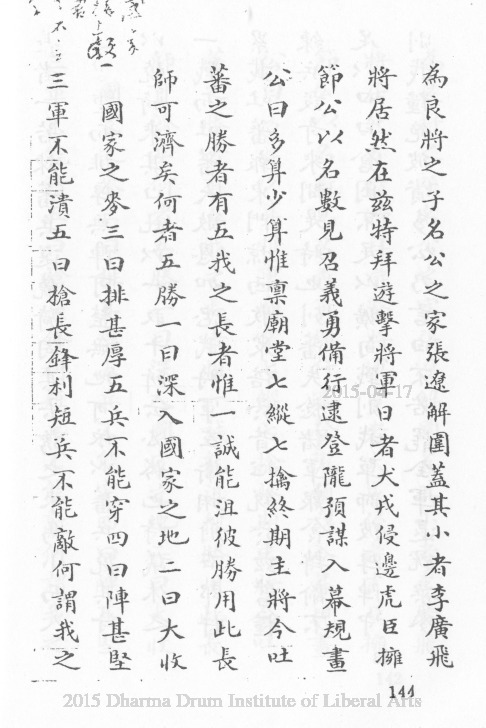 為良將之子名公之家張遼解圍蓋其小者李廣飛
將居然在茲特拜遊擊將軍日者犬戎侵邊虎臣擁
節公以名數見召義勇備行逮登隴預謀入幕規畫
公曰多算少算惟稟廟堂七縱七擒終期主將今吐
蕃之勝者有五我之長者惟一誠能沮彼勝用此長
師可濟矣何者五勝一曰深入國家之地二曰大收
國家之麥三曰排甚厚五兵不能穿四曰陣甚堅
三軍不能潰五曰槍長鋒利短兵不能敵何謂我之
144
2015-04-17
2015 Dharma Drum Institute of Liberal Arts